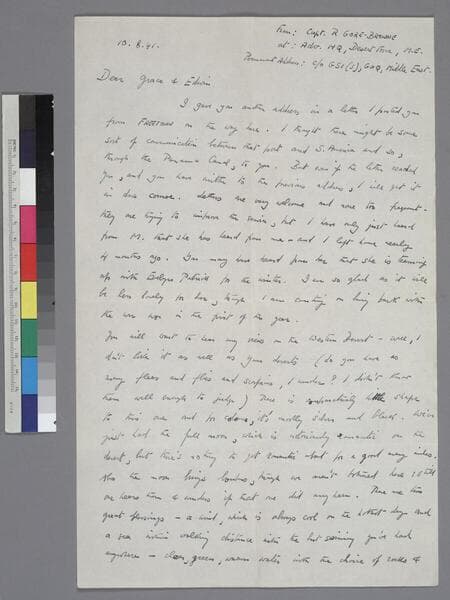 From: Capt. R GORE-BROWNE
10.8.41. at: Adv. HQ, Desert Force, M.E.
Permanent Address: c/o GSI(S), GHQ, Middle East.
Dear Grace & Edwin
I gave you another address in a letter I posted you
from FREETOWN on the way here. I thought there might be some
sort of communication between that port and S. America and so,
through the Panama Canal, to you. But even if the letter reached
you, and you have written to the previous address, I will get it
in due course. Letters are very welcome and none too frequent.
They are trying to improve the service, but I have only just heard
from M. that she has heard from me – and I left home nearly
4 months ago. You may have heard from her that she is teaming
up with Evelyn for the winter. I am so glad as it will
be less lonely for her, though I am counting on being back with
the war won in the first of the year.
You will want to hear my views on the Western Desert – well, I
don't like it as well as your deserts (do you have as
many fleas and flies and scorpions, I wonder? I didn't know
them well enough to judge) There is little shape
to this one and for colour, it's mostly silver and black. We've
just had the full moon, which is notoriously romantic on the
desert, but there's nothing to get romantic about for a good many miles.
Also the moon brings bombers, though we aren't bothered here; still
one hears them & wonders if that one did any harm. There are two
great blessings – a wind, which is always cool on the hottest day and
a sea within walking distance with the best swimming you've had
anywhere – clear, green, warm water with the choice of rocks &